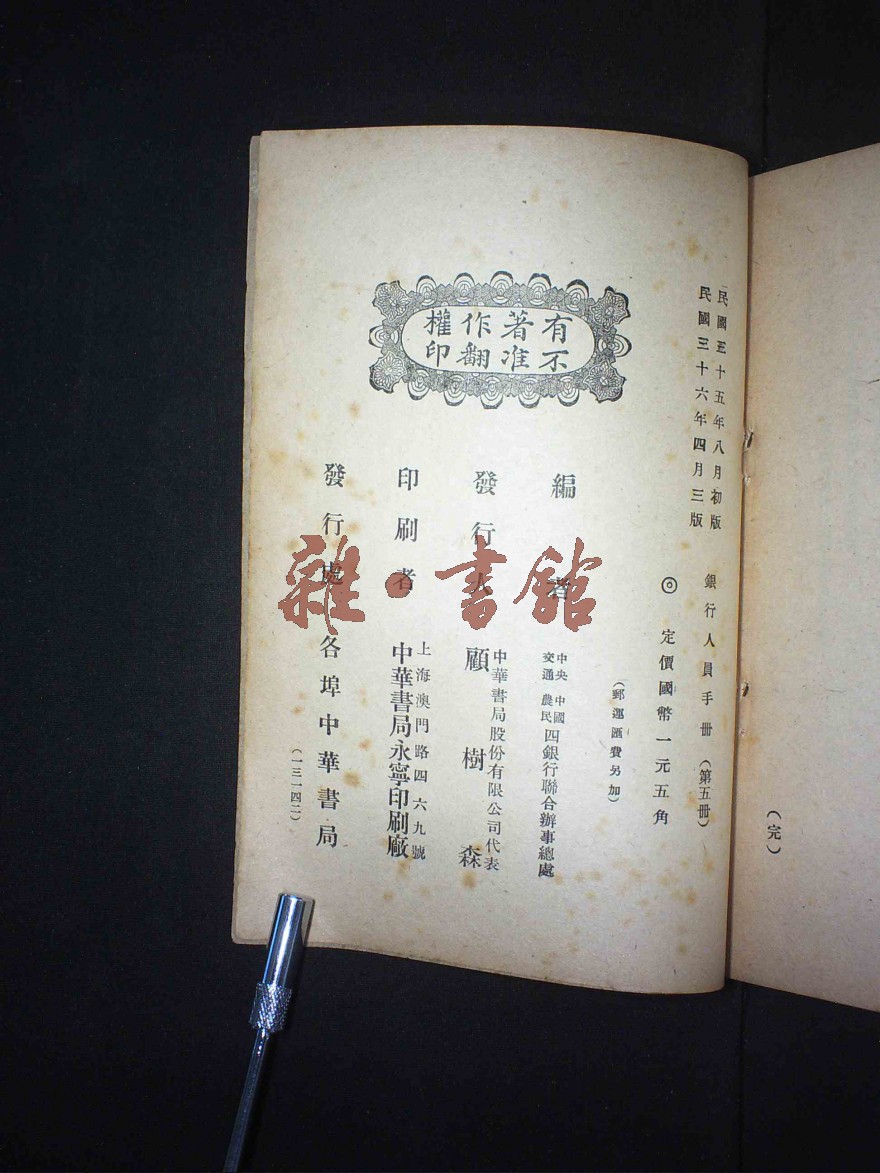 (完)
民國三十五年八月初版
民國三十六年四月三版
銀行人員手册(第五册)
◎定價國幣一元五角
(郵運匯費另加)
有著作權
不准翻印
編者 中央 中國 交通 農民 四銀行聯合辦事總處
發行人 中華書局股份有限公司代表
顧樹森
印刷者 上海澳門路四六九號
中華書局永寧印刷廠
發行處 各埠中華書局
(一三一四二)
雜·書館